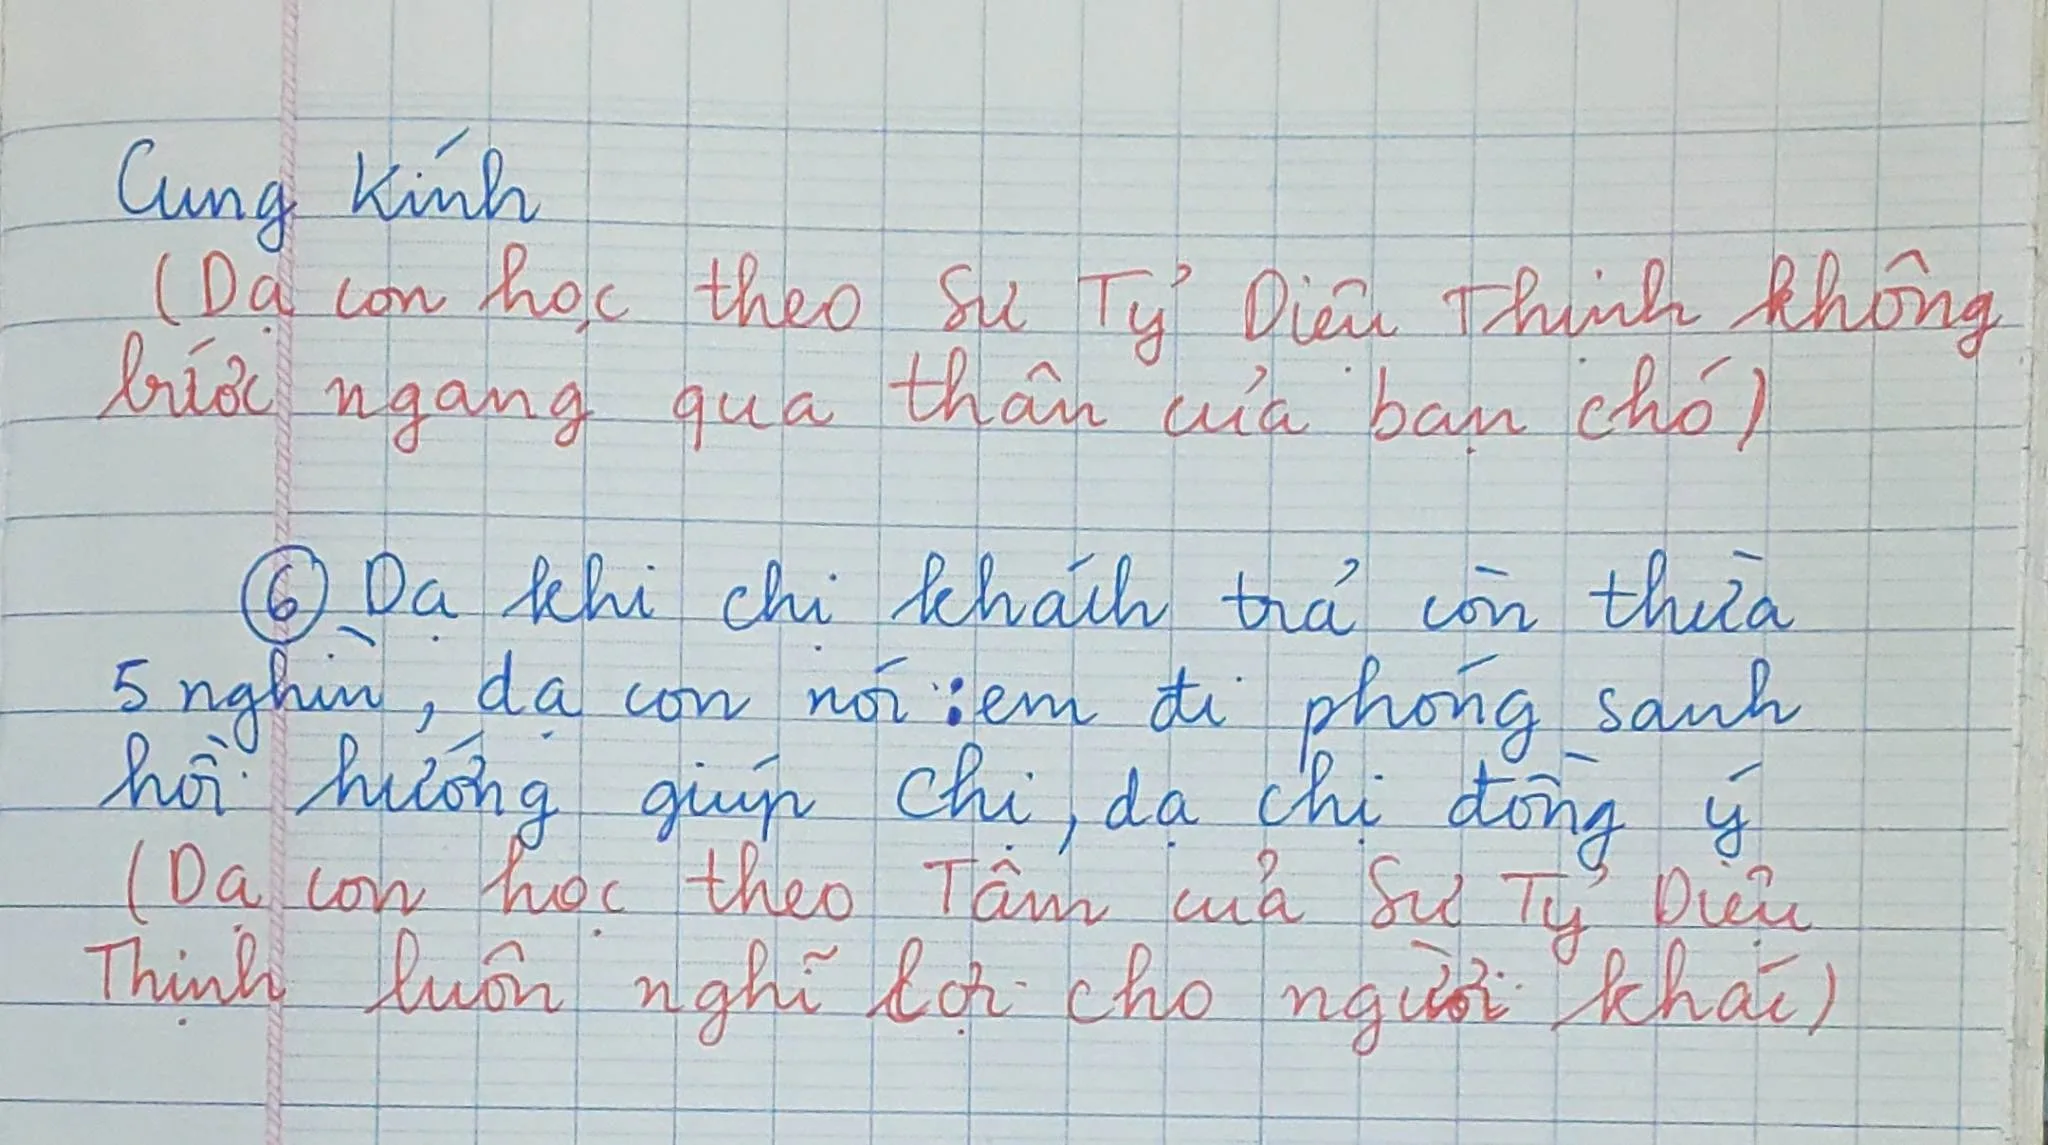 Cung Kính
(Dạ con học theo Sư Tỷ Diệu Thịnh không
bước ngang qua thân của bạn chó)
⑥ Dạ khi chị khách trả còn thừa
5 nghìn, dạ con nói: em đi phóng sanh
hồi hướng giúp chị, dạ chị đồng ý
(Dạ con học theo Tâm của Sư Tỷ Diệu
Thịnh luôn nghĩ lợi cho người khác)